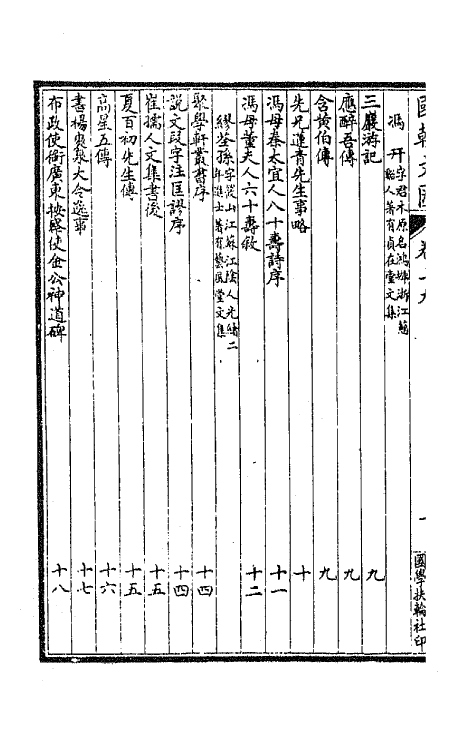 國朝文匯 卷十九 國學扶輪社印
馮 幵 字君木原名鴻墀浙江慈
谿人著有貞在堂文集
三巖游記 九
應醉吾傳 九
含黃伯傳 九
先兄蓮青先生事略 十
馮母秦太宜人八十壽詩序 十一
馮母董夫人六十壽敘 十二
繆荃孫 字筱山江蘇江陰人光緒二
年進士著有藝風堂文集
聚學軒叢書序 十四
說文段字注匡謬序 十四
崔孺人文集書後 十五
夏百初先生傳 十五
高星五傳 十六
書楊 大令逸事 十七
布政使銜廣東按察使金公神道碑 十八